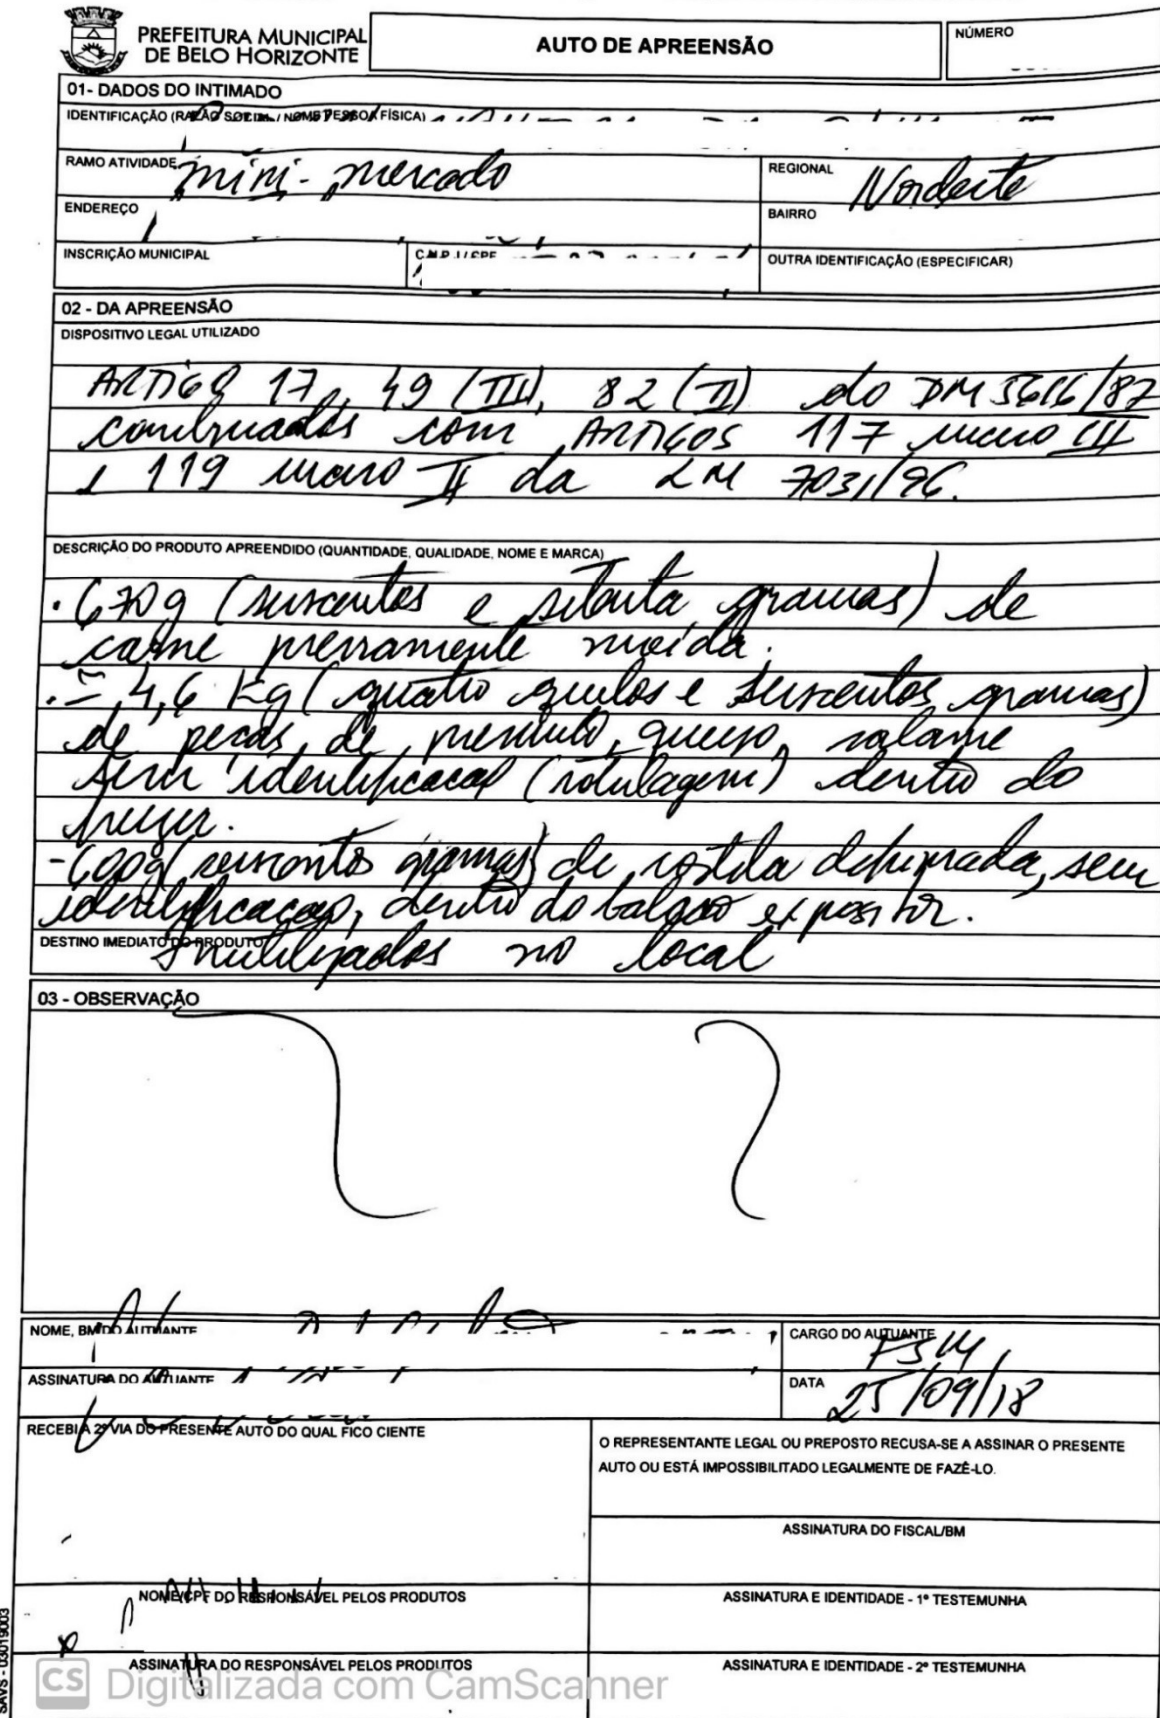 PREFEITURA MUNICIPAL
DE BELO HORIZONTE
AUTO DE APREENSÃO
NÚMERO
01- DADOS DO INTIMADO
IDENTIFICAÇÃO (RAZÃO SOCIAL / NOME PESSOA FÍSICA)
RAMO ATIVIDADE mini-mercado
REGIONAL Nordeste
ENDEREÇO
BAIRRO
INSCRIÇÃO MUNICIPAL
CNPJ/CPF
OUTRA IDENTIFICAÇÃO (ESPECIFICAR)
02 - DA APREENSÃO
DISPOSITIVO LEGAL UTILIZADO
ARTIGO 17, 49 (III), 82 (II) do DM 5616/87
combinados com ARTIGOS 117 inciso III
e 119 inciso II da LM 7031/96.
DESCRIÇÃO DO PRODUTO APREENDIDO (QUANTIDADE, QUALIDADE, NOME E MARCA)
. 670g (seiscentos e setenta gramas) de
carne previamente moída.
. = 4,6 Kg (quatro quilos e seiscentos gramas)
de peças de presunto, queijo, salame
sem identificação (rotulagem) dentro do
freezer.
- 600g (seiscentos gramas) de costela defumada, sem
identificação, dentro do balcão expositor.
DESTINO IMEDIATO DO PRODUTO
Inutilizados no local
03 - OBSERVAÇÃO
NOME, BM DO AUTUANTE
CARGO DO AUTUANTE
FSM
ASSINATURA DO AUTUANTE
DATA 25/09/18
RECEBI A 2ª VIA DO PRESENTE AUTO DO QUAL FICO CIENTE
O REPRESENTANTE LEGAL OU PREPOSTO RECUSA-SE A ASSINAR O PRESENTE
AUTO OU ESTÁ IMPOSSIBILITADO LEGALMENTE DE FAZÊ-LO.
ASSINATURA DO FISCAL/BM
NOME/CPF DO RESPONSÁVEL PELOS PRODUTOS
ASSINATURA E IDENTIDADE - 1ª TESTEMUNHA
ASSINATURA DO RESPONSÁVEL PELOS PRODUTOS
ASSINATURA E IDENTIDADE - 2ª TESTEMUNHA
SAVS - 03019003
CS Digitalizada com CamScanner